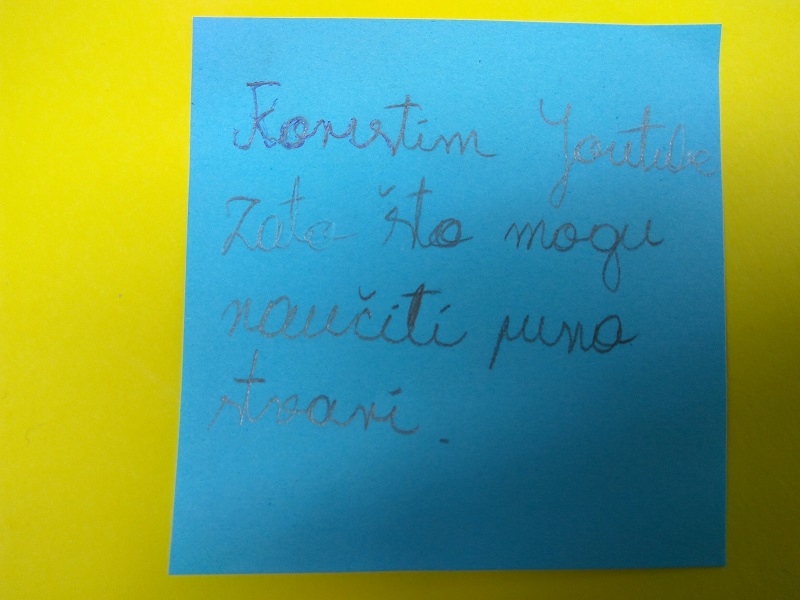 Koristim Youtube
Zato što mogu
naučiti puno
stvari.